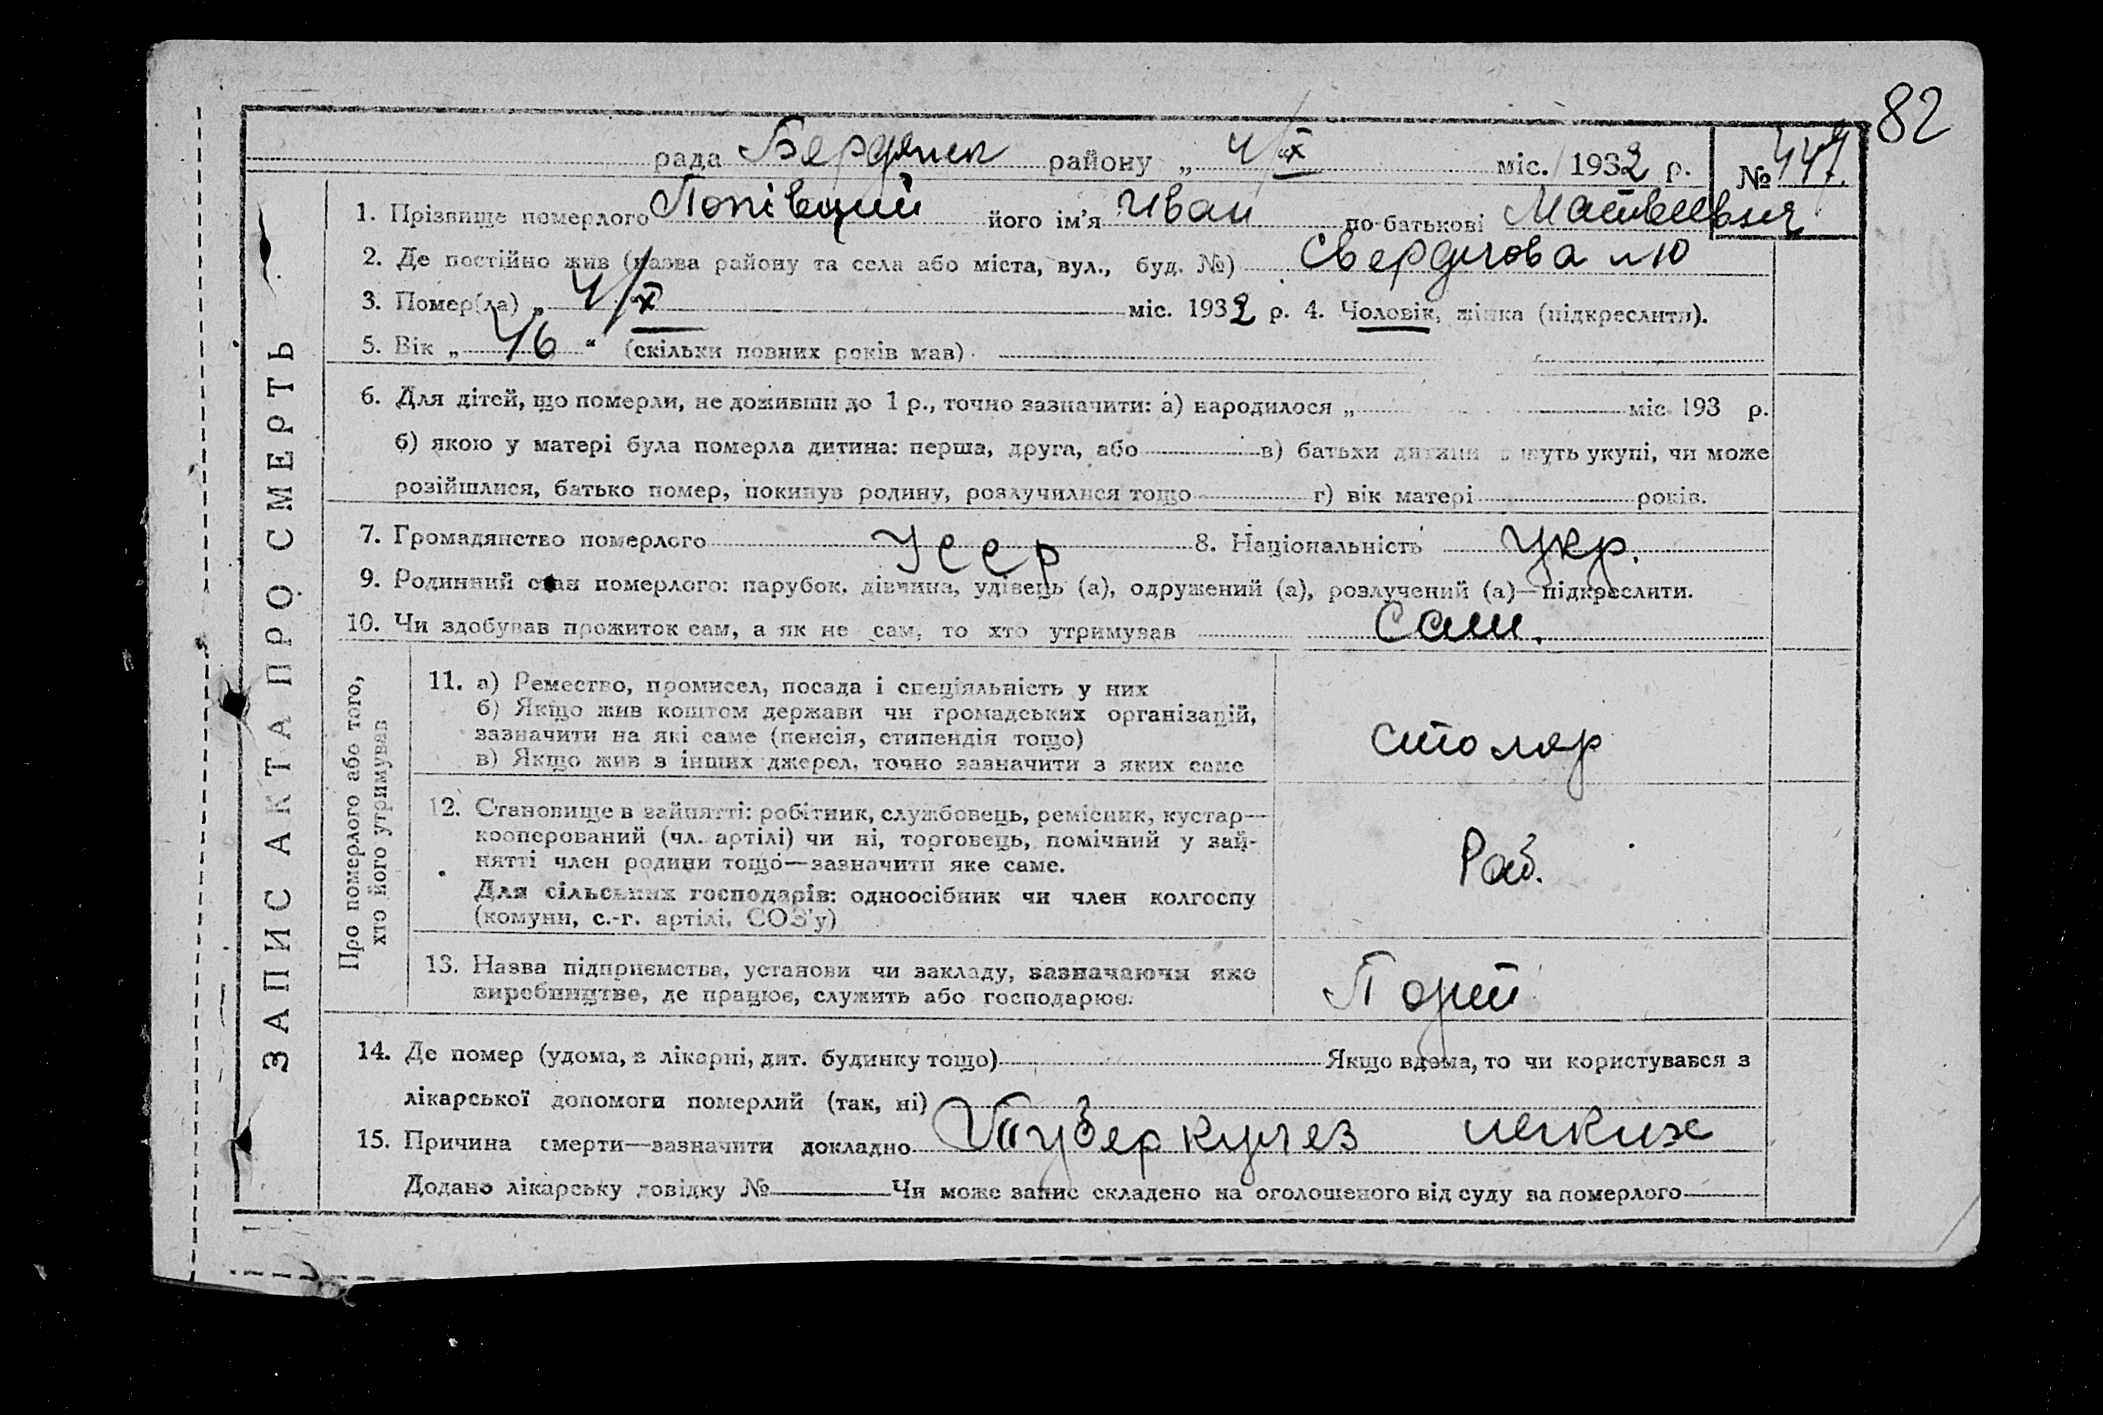 82
рада Бердянск району „ 4/X міс. 1932 р. № 447.
1. Прізвище померлого Попівщий його ім'я Иван по-батькові Матвеевич
2. Де постійно жив (назва району та села або міста, вул., буд. №) Свердлова 10
3. Помер(ла) „ 4/X міс. 1932 р. 4. Чоловік, жінка (підкреслити).
5. Вік „ 46 “ (скільки повних років мав)
6. Для дітей, що померли, не доживши до 1 р., точно зазначити: а) народилося „ міс. 193 р.
б) якою у матері була померла дитина: перша, друга, або в) батьки дитини живуть укупі, чи може
розійшлися, батько помер, покинув родину, розлучилися тощо г) вік матері років.
7. Громадянство померлого УССР 8. Національність Укр.
9. Родинний стан померлого: парубок, дівчина, удівець (а), одружений (а), розлучений (а)—підкреслити.
10. Чи здобував прожиток сам, а як не сам, то хто утримував Сам.
ЗАПИС АКТА ПРО СМЕРТЬ
Про померлого або того,
хто його утримував
11. а) Ремество, промисел, посада і спеціяльність у них
б) Якщо жив коштом держави чи громадських організацій,
зазначити на які саме (пенсія, стипендія тощо)
в) Якщо жив з інших джерел, точно зазначити з яких саме
столяр
12. Становище в зайнятті: робітник, службовець, ремісник, кустар—
кооперований (чл. артілі) чи ні, торговець, помічний у зай-
нятті член родини тощо—зазначити яке саме.
Для сільських господарів: одноосібник чи член колгоспу
(комуни, с.-г. артілі, СОЗ'у)
Раб.
13. Назва підприємства, установи чи закладу, зазначаючи яке
виробництво, де працює, служить або господарює.
Порт
14. Де помер (удома, в лікарні, дит. будинку тощо) Якщо вдома, то чи користувався з
лікарської допомоги померлий (так, ні)
15. Причина смерти—зазначити докладно Туберкулез легких
Додано лікарську довідку № Чи може запис складено на оголошеного від суду за померлого